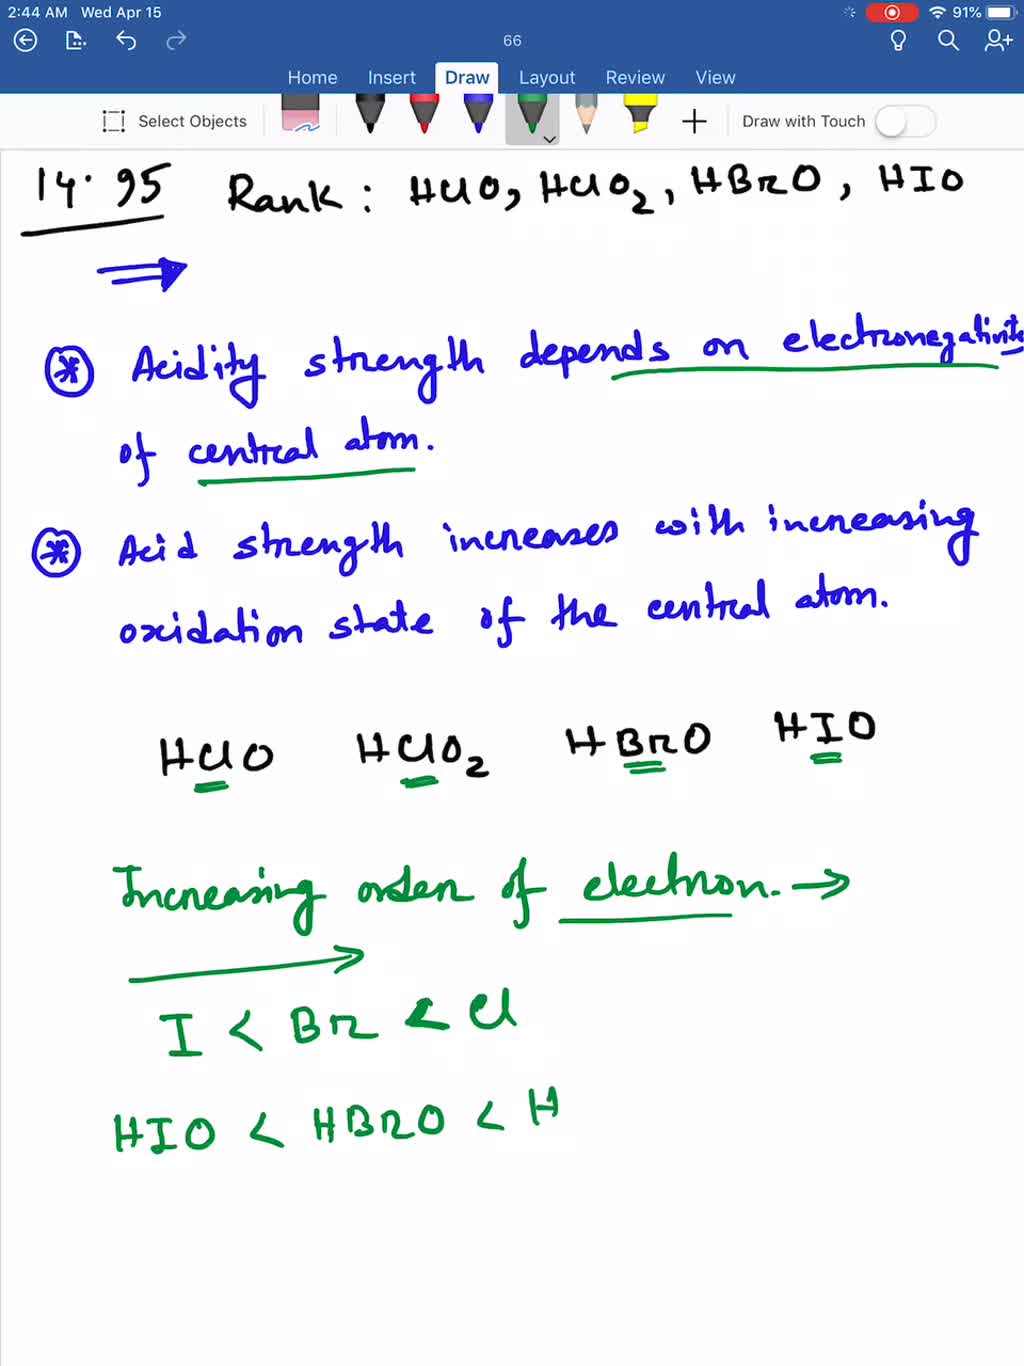 2:44 AM Wed Apr 15
91%
66
Home Insert Draw Layout Review View
Select Objects
Draw with Touch
14.95 Rank: HClO, HClO2, HBrO, HIO
⇒
* Acidity strength depends on electronegativity
of central atom.
* Acid strength increases with increasing
oxidation state of the central atom.
HClO HClO2 HBrO HIO
Increasing order of electron. →
I < Br < Cl
HIO < HBrO < H